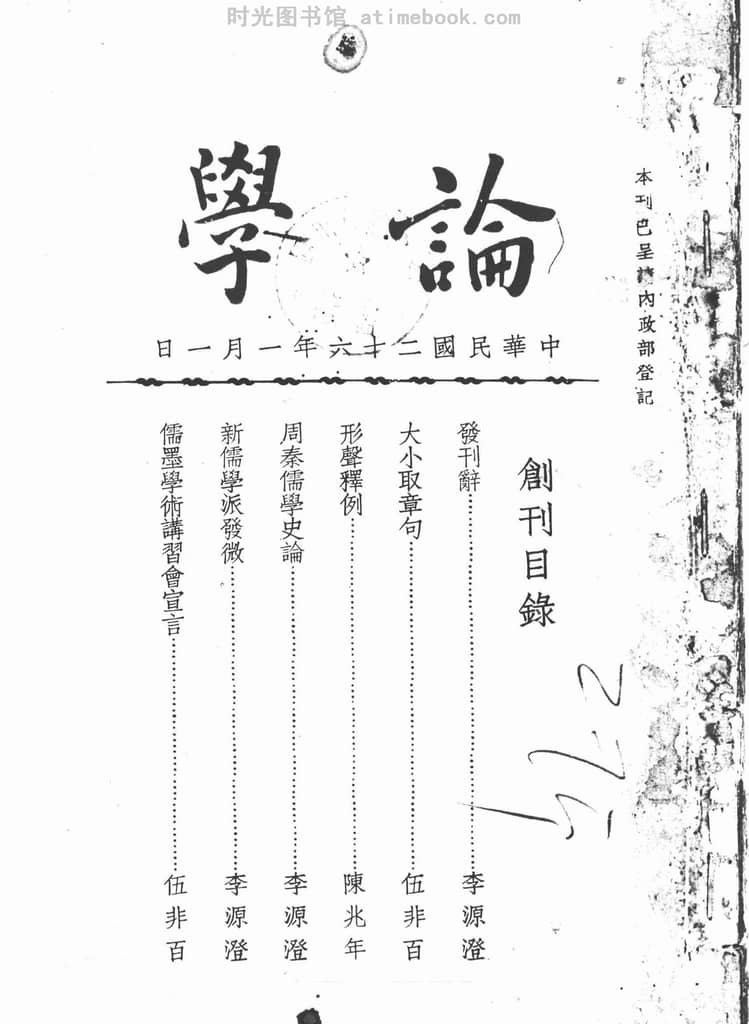 时光图书馆 atimebook.com
論學
本刊已呈請內政部登記
中華民國二十六年一月一日
創刊目錄
發刊辭……李源澄
大小取章句……伍非百
形聲釋例……陳兆年
周秦儒學史論……李源澄
新儒學派發微……李源澄
儒墨學術講習會宣言……伍非百